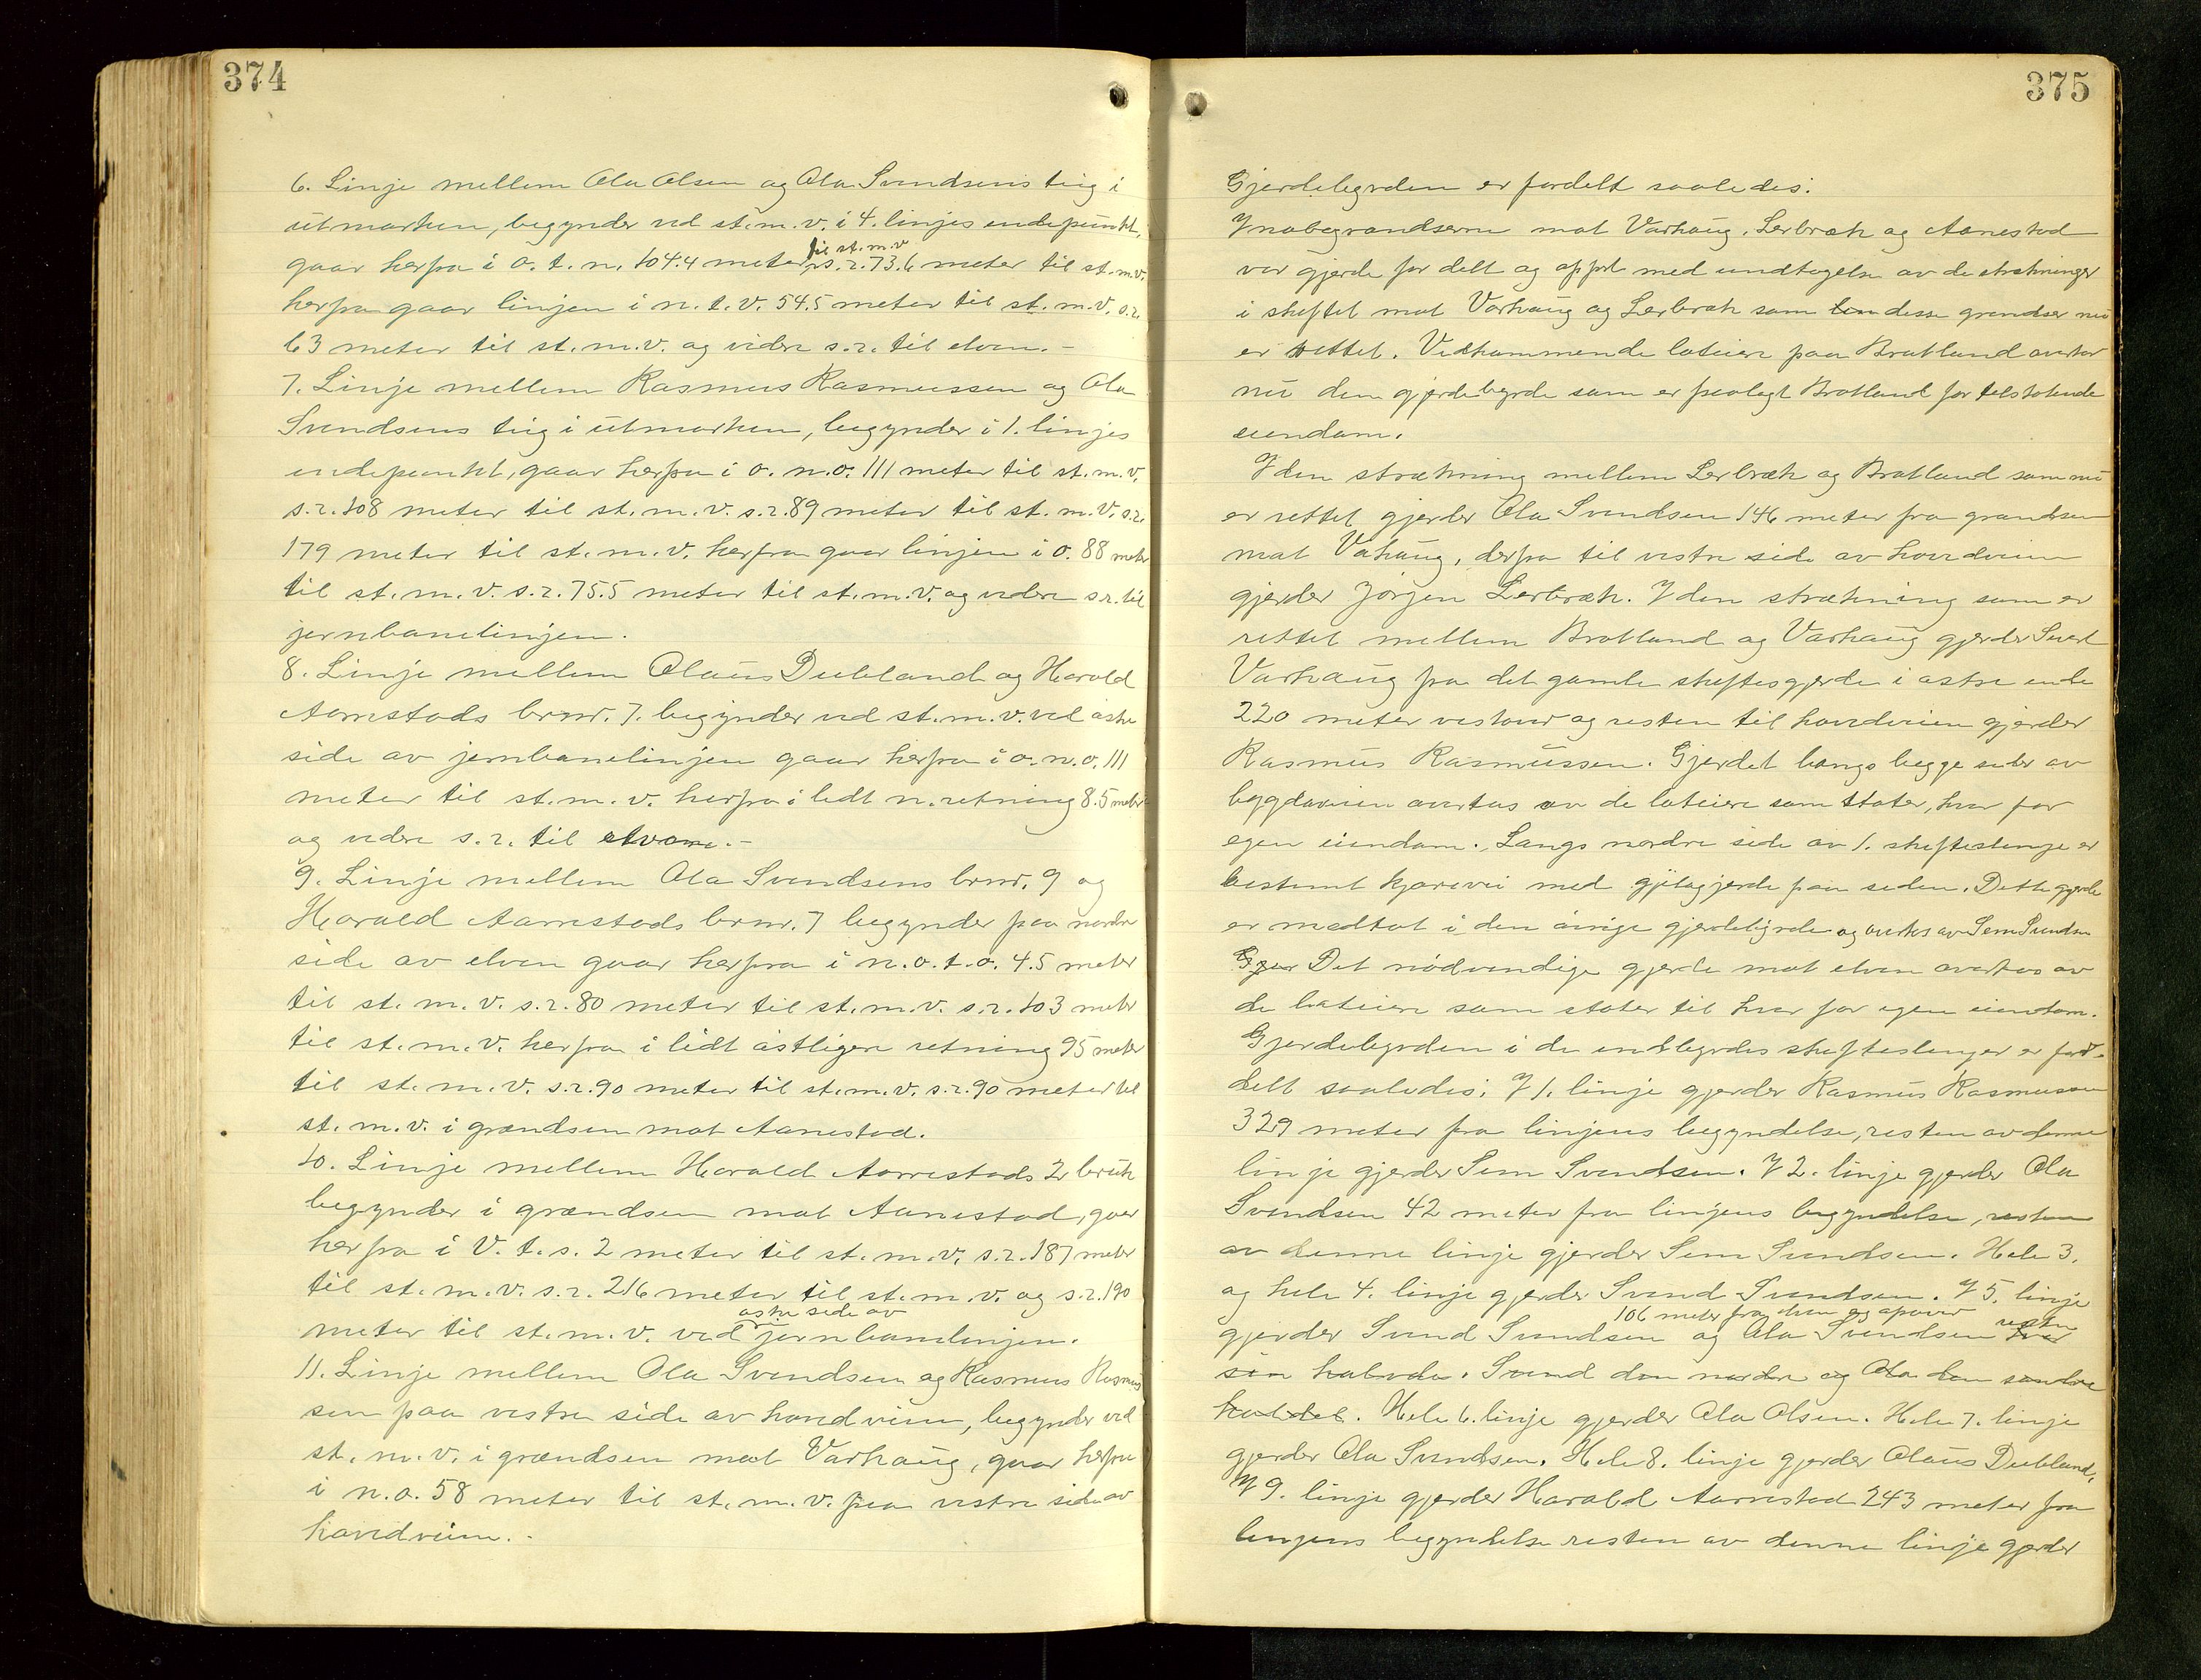 374
6. Linje mellem Ola Olsen og Ola Svendsens teig i
utmarken, begynder ved st. m. v. i 4. linjes endepunkt,
gaar herfra i o. t. n. 104.4 meter til st. m. v s. r. 73.6 meter til st. m. v.
herfra gaar linjen i n. t. v. 54.5 meter til st. m. v. s. r.
63 meter til st. m. v. og videre s. r. til elven. -
7. Linje mellem Rasmus Rasmussen og Ola
Svendsens teig i utmarken, begynder i 1. linjes
endepunkt, gaar herfra i o. n. o. 111 meter til st. m. v.
s. r. 108 meter til st. m. v. s. r. 89 meter til st. m. v. s. r.
179 meter til st. m. v. herfra gaar linjen i o. 88 meter
til st. m. v. s. r. 75.5 meter til st. m. v. og videre s. r. til
jernbanelinjen.
8. Linje mellem Olaus Dubland og Harald
Aarrestads brnr. 7. begynder ved st. m. v. ved østre
side av jernbanelinjen gaar herfra i o. n. o. 111
meter til st. m. v. herfra i lidt n. retning 8.5 meter
og videre s. r. til elven. -
9. Linje mellem Ola Svendsens brnr. 9 og
Harald Aarrestads brnr. 7 begynder paa nordre
side av elven gaar herfra i n. o. t. o. 4.5 meter
til st. m. v. s. r. 80 meter til st. m. v. s. r. 103 meter
til st. m. v. herfra i lidt østligere retning 95 meter
til st. m. v. s. r. 90 meter til st. m. v. s. r. 90 meter til
st. m. v. i grændsen mot Aanestad.
10. Linje mellem Harald Aarrestads 2 bruk
begynder i grændsen mot Aanestad, gaar
herfra i v. t. s. 2 meter til st. m. v. s. r. 187 meter
til st. m. v. s. r. 216 meter til st. m. v. og s. r. 190
meter til st. m. v. ved østre side av jernbanelinjen.
11. Linje mellem Ola Svendsen og Rasmus Rasmus
sen paa vestre side av hovedveien, begynder ved
st. m. v. i grændsen mot Varhaug, gaar herfra
i n. o. 58 meter til st. m. v. paa vestre side av
hovedveien. -
375
Gjerdebyrden er fordelt saaledes:
I nabogrændserne mot Varhaug, Lerbræk og Aanestad
var gjerde fordelt og opført med undtagelse av de strækninger
i skiftet mot Varhaug og Lerbræk som disse grændser nu
er rettet. Vedkommende loteiere paa Bratland overtar
nu den gjerdebyrde som er paalagt Bratland for tilstøtende
eiendom.
I den strækning mellem Lerbræk og Bratland som nu
er rettet gjerder Ola Svendsen 146 meter fra grændsen
mot Vahaug, derfra til vestre side av hovedveien
gjerder Jörgen Lerbræk. I den strækning som er
rettet mellem Bratland og Varhaug gjerder Sivert
Varhaug fra det gamle skiftesgjerde i østre ende
220 meter vestover og resten til hovedveien gjerder
Rasmus Rasmussen. Gjerdet langs begge sider av
bygdaveien overtas av de loteiere som støter, hver for
egen eiendom. Langs nordre side av 1. skifteslinje er
bestemt kjørevei med gjetagjerde paa siden. Dette gjerde
er medtat i den øvrige gjerdebyrde og overtas av Sem Svendsen
Det nödvendige gjerde mot elven overtas av
de loteiere som støter til hver for egen eiendom.
Gjerdebyrden i de indbyrdes skifteslinjer er for-
delt saaledes: I 1. linje gjerder Rasmus Rasmussen
329 meter fra linjens begyndelse, resten av denne
linje gjerder Sem Svendsen. I 2. linje gjerder Ola
Svendsen 42 meter fra linjens begyndelse, resten
av denne linje gjerder Sem Svendsen. Hele 3.
og hele 4. linje gjerder Svend Svendsen. I 5. linje
gjerder Svend Svendsen 106 meter fra elven og opover og Ola Svendsen resten hver
sin halvde. Svend den nordre og Ola den søndre
halvdel. Hele 6. linje gjerder Ola Olsen. Hele 7. linje
gjerder Ola Svendsen. Hele 8. linje gjerder Olaus Dubland,
I 9. linje gjerder Harald Aarrestad 243 meter fra
linjens begyndelse resten av denne linje gjerder